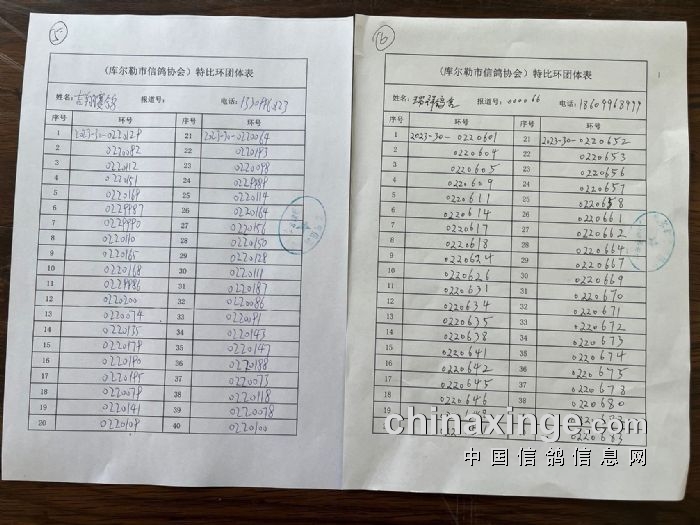 5
（库尔勒市信鸽协会）特比环团体表
姓名： 报道号： 电话：
序号 环号 序号 环号
1 2023-30-0220129 21 2023-30-0220064
2 0220082 22 0220193
3 0220112 23 0220098
4 0220151 24
5 0220169 25 0220114
6 26 0220164
7 27 0220156
8 0220110 28 0220150
9 0220165 29 0220128
10 0220168 30 0220111
11 31 0220187
12 0220200 32 0220086
13 0220074 33 0220091
14 0220135 34 0220143
15 0220179 35 0220147
16 0220190 36 0220188
17 0220195 37 0220073
18 0220079 38 0220118
19 0220141 39 0220078
20 0220109 40 0220100
16
（库尔勒市信鸽协会）特比环团体表
姓名： 报道号：000066 电话：
序号 环号 序号 环号
1 2023-30-0220601 21 2023-30-0220652
2 0220604 22 0220653
3 0220605 23 0220656
4 0220609 24 0220657
5 0220611 25 0220658
6 0220614 26 0220661
7 0220617 27 0220662
8 0220618 28 0220664
9 0220624 29 0220667
10 0220626 30 0220669
11 0220631 31 0220670
12 0220634 32 0220671
13 0220635 33 0220672
14 0220638 34 0220673
15 0220641 35 0220674
16 0220642 36 0220675
17 0220645 37 0220678
18 0220646 38 0220680
19
20 0220683
chinaxinge.com
中国信鸽信息网